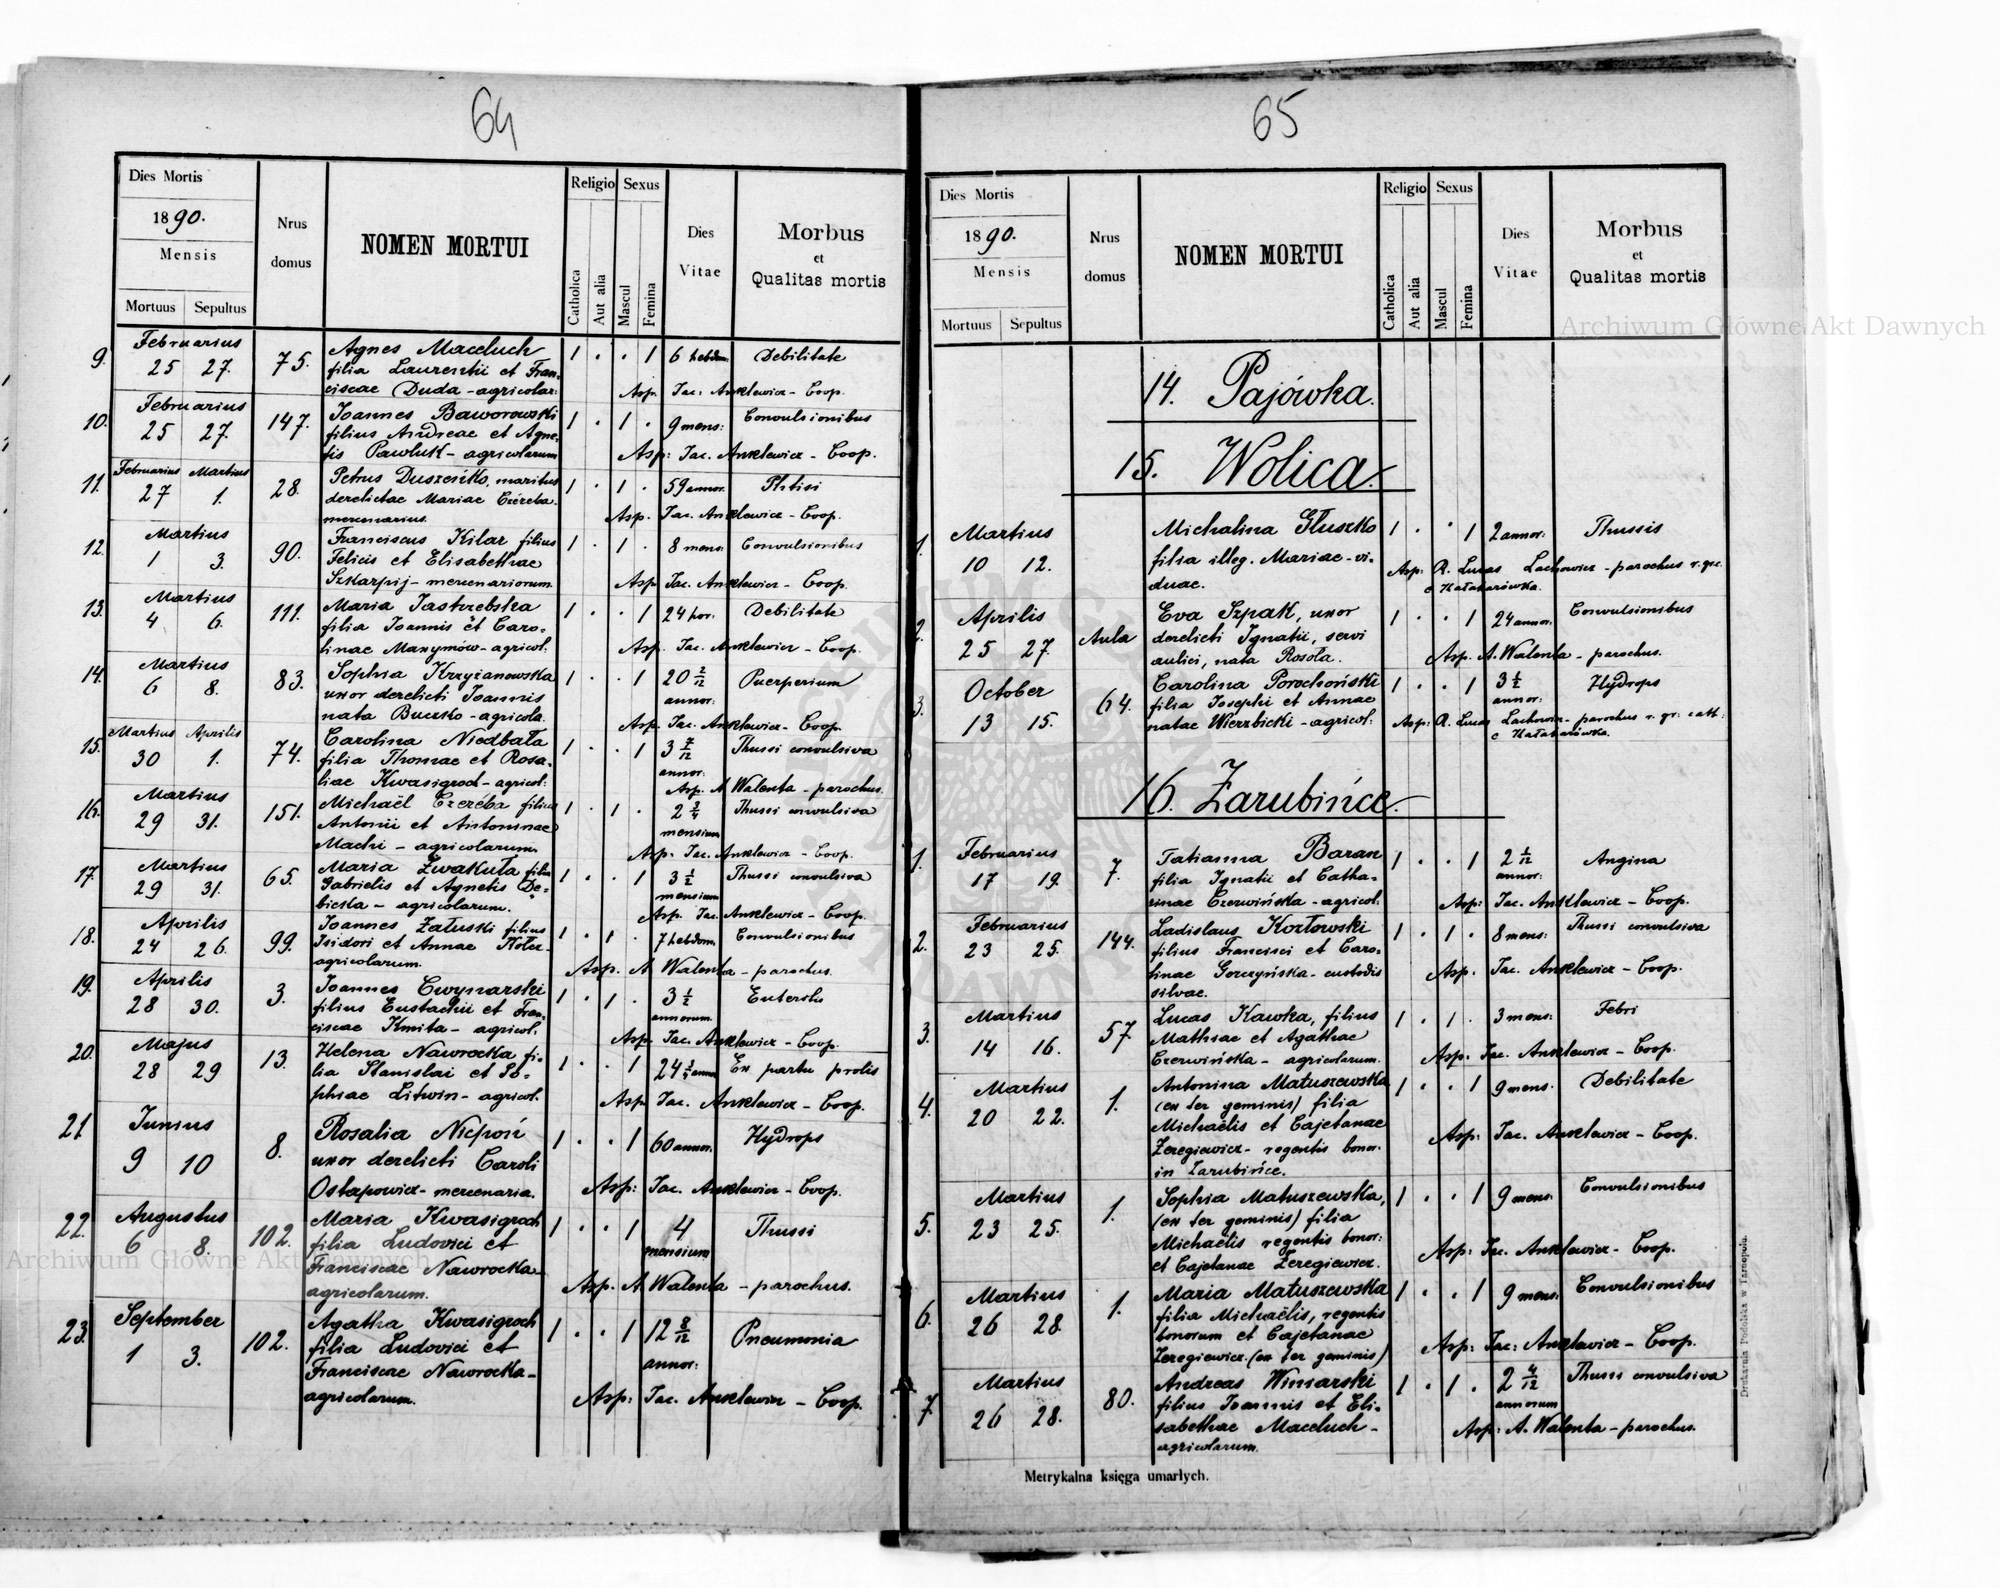 64
Dies Mortis
1890.
Mensis
Mortuus Sepultus
Nrus
domus
NOMEN MORTUI
Religio
Catholica
Aut alia
Sexus
Mascul
Femina
Dies
Vitae
Morbus
et
Qualitas mortis
9. Februarius
25 27. 75.
Agnes Maceluch 1 . . 1 6 hebdom. Debilitate
filia Laurentii et Fran-
ciscae Duda - agricolar: Asp. Jac: Anklewicz - Coop.
10. Februarius
25 27. 147.
Joannes Baworowski 1 . 1 . 9 mens: Convulsionibus
filius Andreae et Agne-
tis Pawluk - agricolarum Asp: Jac. Anklewicz - Coop.
11. Februarius Martius
27 1. 28.
Petrus Duszeńko, maritus 1 . 1 . 59 annor. Phtisi
derelictae Mariae Czereba
mercenarius. Asp. Jac. Anklewicz - Coop.
12. Martius
1 3. 90.
Franciscus Kilar filius 1 . 1 . 8 mens: Convulsionibus
Felicis et Elisabethae
Szkarpij - mercenariorum. Asp. Jac. Anklewicz - Coop.
13. Martius
4 6. 111.
Maria Jastrzebska 1 . . 1 24 hor. Debilitate
filia Joannis et Caro-
linae Maxymów - agricol. Asp. Jac. Anklewicz - Coop.
14. Martius
6 8. 83.
Sophia Krzyżanowska 1 . . 1 20 2/12 Puerperium
uxor derelicti Joannis annor:
nata Buczko - agricola. Asp. Jac. Anklewicz - Coop.
15. Martius Aprilis
30 1. 74.
Carolina Niedbała 1 . . 1 3 7/12 Thussi convulsiva
filia Thomae et Rosa- annor:
liae Kwasigroch - agricol: Asp. A Walenta - parochus.
16. Martius
29 31. 151.
Michaël Czereba filius 1 . 1 . 2 3/4 Thussi convulsiva
Antonii et Antoninae mensium
Machi - agricolarum. Asp. Jac. Anklewicz - Coop.
17. Martius
29 31. 65.
Maria Żwakuła filia 1 . . 1 3 1/2 Thussi convulsiva
Gabrielis et Agnetis De- mensium
bicka - agricolarum. Asp. Jac. Anklewicz - Coop.
18. Aprilis
24 26. 99.
Joannes Załuski filius 1 . 1 . 7 hebdom. Convulsionibus
Isidori et Annae
agricolarum. Asp. A Walenta - parochus.
19. Aprilis
28 30. 3.
Joannes Cwynarski 1 . 1 . 3 1/2
filius Eustachii et Fran- annorum
ciscae Kmita - agricol. Asp. Jac. Anklewicz - Coop.
20. Majus
28 29 13.
Helena Nawrocka fi- 1 . . 1 24 Ex partu prolis
lia Stanislai et So-
phiae Litwin - agricol. Asp. Jac. Anklewicz - Coop.
21. Junius
9 10 8.
Rosalia 1 . . 1 60 annor. Hydrops
uxor derelicti Caroli
Ostapowicz - mercenaria. Asp: Jac. Anklewicz - Coop.
22. Augustus
6 8. 102.
Maria Kwasigroch 1 . . 1 4 Thussi
filia Ludovici et mensium
Franciscae Nawrocka -
agricolarum. Asp. A Walenta - parochus.
23. September
1 3. 102.
Agatha Kwasigroch 1 . . 1 12 8/12 Pneumonia
filia Ludovici et annor:
Franciscae Nawrocka -
agricolarum. Asp: Jac. Anklewicz - Coop.
65
Dies Mortis
1890.
Mensis
Mortuus Sepultus
Nrus
domus
NOMEN MORTUI
Religio
Catholica
Aut alia
Sexus
Mascul
Femina
Dies
Vitae
Morbus
et
Qualitas mortis
14. Pajówka.
15. Wolica.
1. Martius
10 12.
Michalina Głuszko 1 . . 1 2 annor: Thussis
filia illeg. Mariae - vi- Asp: R. Lucas Lachowicz - parochus r. gr.
duae. c Kałaharówka.
2. Aprilis
25 27. Aula
Eva Szpak, uxor 1 . . 1 24 annor: Convulsionibus
derelicti Ignatii, servi
aulici, nata Rosoła. Asp. A. Walenta - parochus.
3. October
13 15. 64.
Carolina Porochoński 1 . . 1 3 1/2 Hydrops
filia Josephi et Annae annor:
natae Wierzbicki - agricol: Asp: R. Lucas Lachowicz - parochus r. gr: cath:
c Kałaharówka.
16. Zarubińce.
1. Februarius
17 19. 7.
Tatianna Baran 1 . . 1 2 1/12 Angina
filia Ignatii et Catha- annor:
rinae Czerwińska - agricol: Asp: Jac. Anklewicz - Coop.
2. Februarius
23 25. 144.
Ladislaus Kozłowski 1 . 1 . 8 mens: Thussi convulsiva
filius Francisci et Caro-
linae Gorczyńska - custodis Asp: Jac. Anklewicz - Coop.
silvae.
3. Martius
14 16. 57.
Lucas Kawka, filius 1 . 1 . 3 mens: Febri
Mathiae et Agathae
Czerwińska - agricolarum. Asp: Jac. Anklewicz - Coop.
4. Martius
20 22. 1.
Antonina Matuszewska 1 . . 1 9 mens. Debilitate
(ex ter geminis) filia
Michaëlis et Cajetanae Asp: Jac. Anklewicz - Coop.
Zeregiewicz - regentis bonor.
in Zarubińce.
5. Martius
23 25. 1.
Sophia Matuszewska, 1 . . 1 9 mens. Convulsionibus
(ex ter geminis) filia
Michaëlis regentis bonor: Asp: Jac. Anklewicz - Coop.
et Cajetanae Zeregiewicz.
6. Martius
26 28. 1.
Maria Matuszewska 1 . . 1 9 mens: Convulsionibus
filia Michaëlis, regentis
bonorum et Cajetanae Asp: Jac: Anklewicz - Coop.
Zeregiewicz. (ex ter geminis)
7. Martius
26 28. 80.
Andreas Winiarski 1 . 1 . 2 4/12 Thussi convulsiva
filius Joannis et Eli- annorum
sabethae Maceluch - Asp: A. Walenta - parochus.
agricolarum.
Metrykalna księga umarłych.
Drukarnia Podolska w Tarnopolu.
Archiwum Główne Akt Dawnych
Archiwum Główne Akt Dawnych